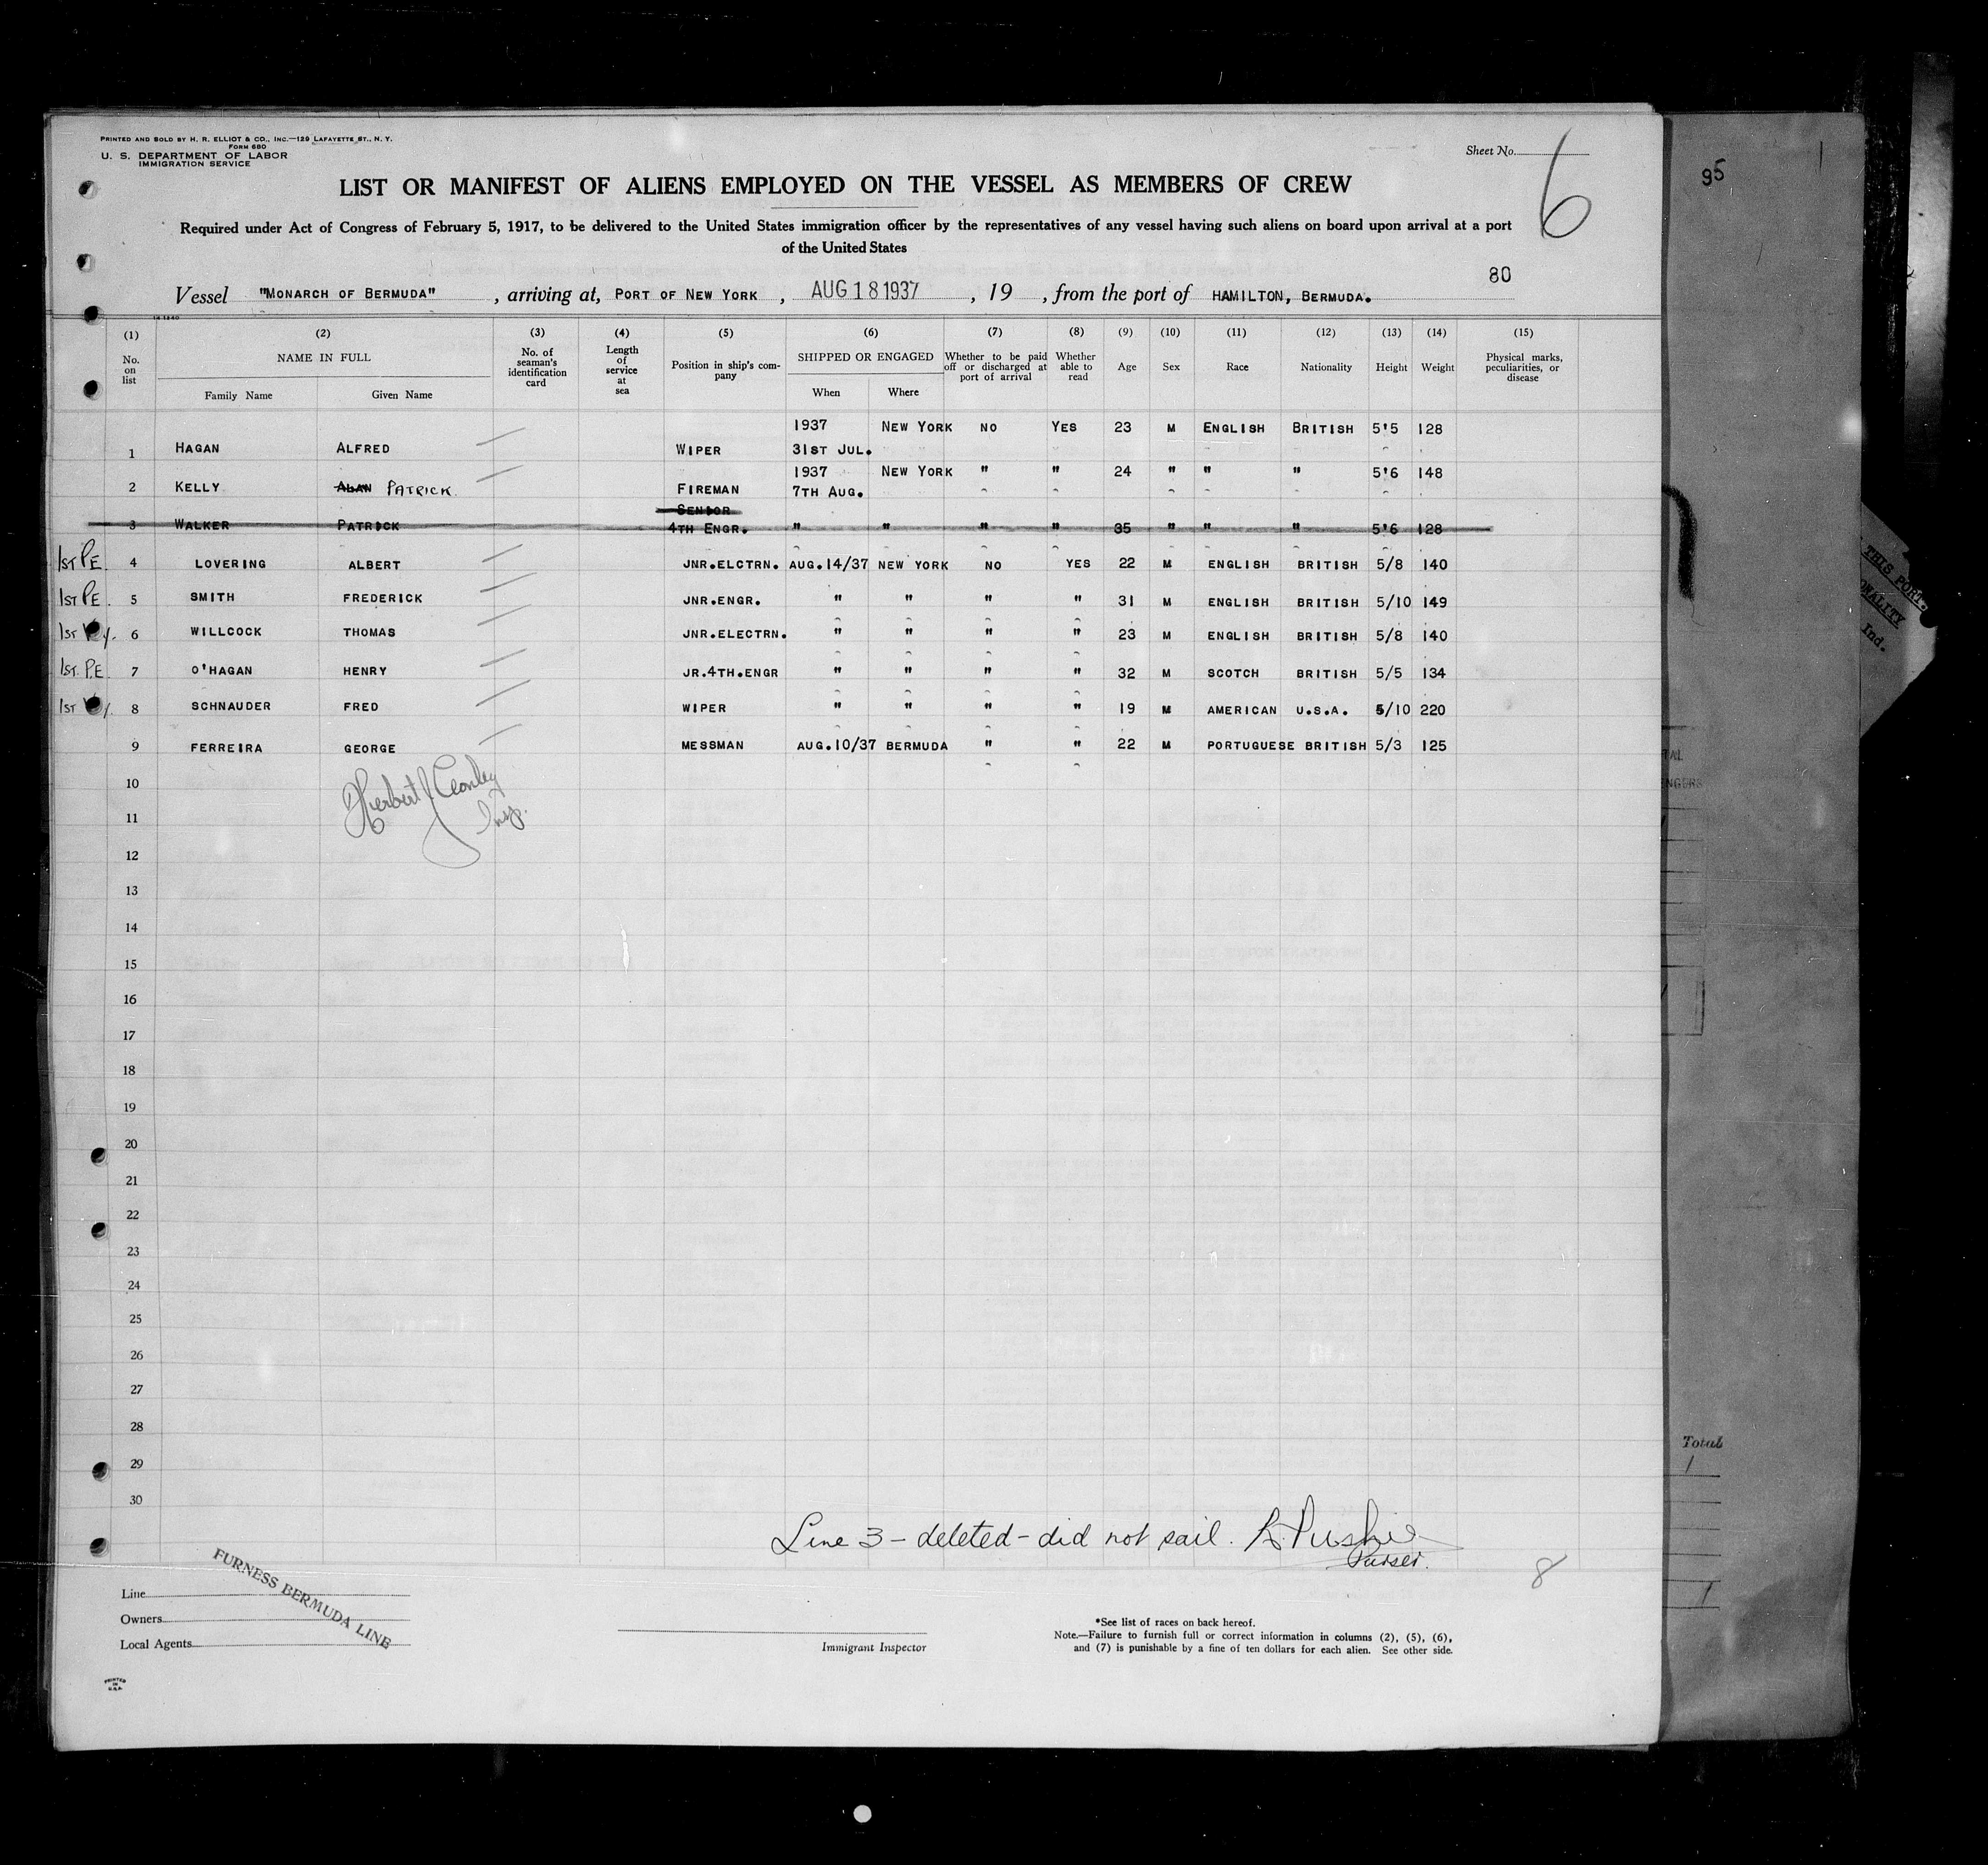 PRINTED AND SOLD BY H. R. ELLIOT & CO., INC.—129 LAFAYETTE ST., N. Y.
FORM 680
U. S. DEPARTMENT OF LABOR
IMMIGRATION SERVICE
Sheet No.
6
95
LIST OR MANIFEST OF ALIENS EMPLOYED ON THE VESSEL AS MEMBERS OF CREW
Required under Act of Congress of February 5, 1917, to be delivered to the United States immigration officer by the representatives of any vessel having such aliens on board upon arrival at a port
of the United States
80
Vessel "MONARCH OF BERMUDA", arriving at, PORT OF NEW YORK, AUG 18 1937, 19, from the port of HAMILTON, BERMUDA.
(1) (2) (3) (4) (5) (6) (7) (8) (9) (10) (11) (12) (13) (14) (15)
No. on list
NAME IN FULL
Family Name Given Name
No. of seaman's identification card
Length of service at sea
Position in ship's company
SHIPPED OR ENGAGED
When Where
Whether to be paid off or discharged at port of arrival
Whether able to read
Age Sex Race Nationality Height Weight
Physical marks, peculiarities, or disease
1 HAGAN ALFRED WIPER 1937 31ST JUL. NEW YORK NO YES 23 M ENGLISH BRITISH 5'5 128
2 KELLY ALAN PATRICK FIREMAN 1937 7TH AUG. NEW YORK " " 24 " " " 5'6 148
3 WALKER PATRICK SENIOR 4TH ENGR. " " " " 35 " " " 5'6 128
1ST P.E. 4 LOVERING ALBERT JNR.ELCTRN. AUG.14/37 NEW YORK NO YES 22 M ENGLISH BRITISH 5/8 140
1ST P.E. 5 SMITH FREDERICK JNR.ENGR. " " " " 31 M ENGLISH BRITISH 5/10 149
1ST 6 WILLCOCK THOMAS JNR.ELECTRN. " " " " 23 M ENGLISH BRITISH 5/8 140
1ST. P.E 7 O'HAGAN HENRY JR.4TH.ENGR " " " " 32 M SCOTCH BRITISH 5/5 134
1ST 8 SCHNAUDER FRED WIPER " " " " 19 M AMERICAN U.S.A. 5/10 220
9 FERREIRA GEORGE MESSMAN AUG.10/37 BERMUDA " " 22 M PORTUGUESE BRITISH 5/3 125
10
Herbert
Insp.
11
12
13
14
15
16
17
18
19
20
21
22
23
24
25
26
27
28
29
30
Line 3 - deleted - did not sail.
Purser.
8
FURNESS BERMUDA LINE
Line
Owners
Local Agents
Immigrant Inspector
*See list of races on back hereof.
Note.—Failure to furnish full or correct information in columns (2), (5), (6),
and (7) is punishable by a fine of ten dollars for each alien. See other side.
PRINTED
IN
U.S.A.
THIS PORT.
Ind.
Total